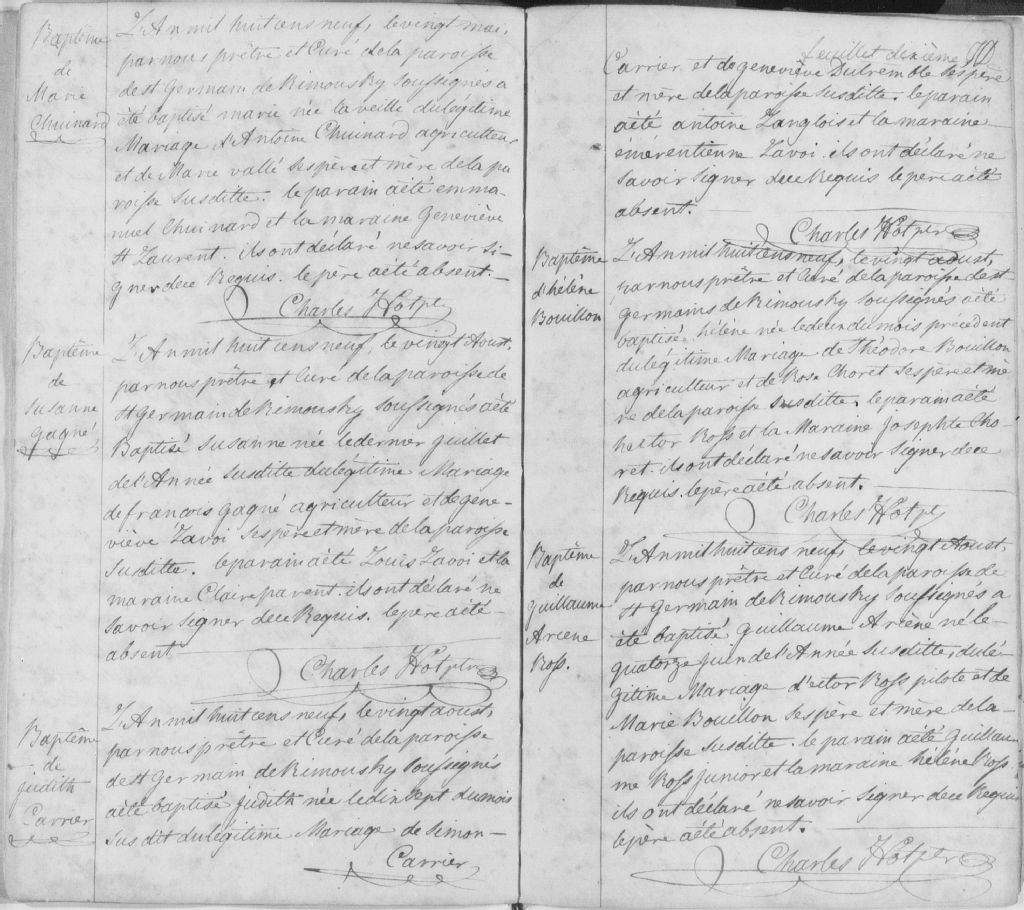 Baptême
de
Marie
Chuinard
L'An mil huit cens neuf, le vingt mai,
par nous prêtre et Curé de la paroisse
de st Germain de Rimousky soussignés a
été baptisé marie née la veille du légitime
Mariage d'Antoine Chuinard agriculteur
et de Marie vallé ses père et mère de la pa
roisse susditte. le parain a été emma-
nuel Chuinard et la maraine Geneviève
st Laurent. ils ont déclaré ne savoir si-
gner de ce Requis. le père a été absent.
Charles Hot ptr
Baptême
de
susanne
gagné
L'An mil huit cens neuf, le vingt Aoust,
par nous prêtre et Curé de la paroisse de
st Germain de Rimousky soussignés a été
Baptisé susanne née le dernier juillet
de l'Année susditte du légitime Mariage
de francois gagné agriculteur et de gene-
viève Lavoi ses père et mère de la paroisse
susditte. le parain a été Louis Lavoi et la
maraine Claire parent. ils ont déclaré ne
savoir signer de ce Requis. le père a été
absent
Charles Hot ptr
Baptême
de
judith
Carrier
L'An mil huit cens neuf, le vingt aoust,
par nous prêtre et Curé de la paroisse
de st Germain de Rimousky soussignés
a été baptisé judith née le dix sept du mois
susdit du légitime Mariage de simon
Carrier
feuillet dixième
Carrier et de geneviève Dutremble ses père
et mère de la paroisse susditte. le parain
a été antoine Langlois et la maraine
émérentienne Lavoi. ils ont déclaré ne
savoir signer de ce Requis le père a été
absent.
Charles Hot ptr
Baptême
d'hélène
Bouillon
L'An mil huit cens neuf, le vingt aoust,
par nous prêtre et Curé de la paroisse de st
germains de Rimousky soussignés a été
baptisée hélène née le deux du mois précédent
du légitime Mariage de Théodore Bouillon
agriculteur et de Rose Choret ses père et mè
re de la paroisse susditte. le parain a été
hector Ross et la Maraine Josephte Cho-
ret. ils ont déclaré ne savoir signer de ce
Requis. le père a été absent.
Charles Hot ptr
Baptême
de
guillaume
Arcene
Ross.
L'An mil huit cens neuf, le vingt Aoust,
par nous prêtre et Curé de la paroisse de
st Germain de Rimousky soussignés a
été baptisé guillaume Arcène né le
quatorze juin de l'Année susditte, du lé-
gitime Mariage d'ector Ross pilote et de
Marie Bouillon ses père et mère de la
paroisse susditte. le parain a été guillau-
me Ross junior et la maraine hélène Ross
ils ont déclaré ne savoir signer de ce Requis
le père a été absent.
Charles Hot ptr